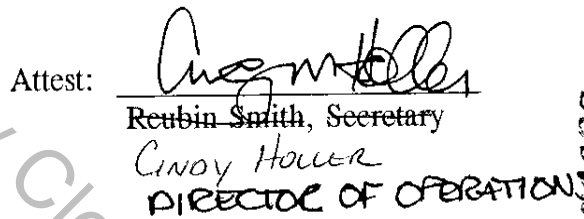 Attest: Cindy M Holler
Reubin Smith, Secretary
CINDY HOLLER
DIRECTOR OF OPERATIONS